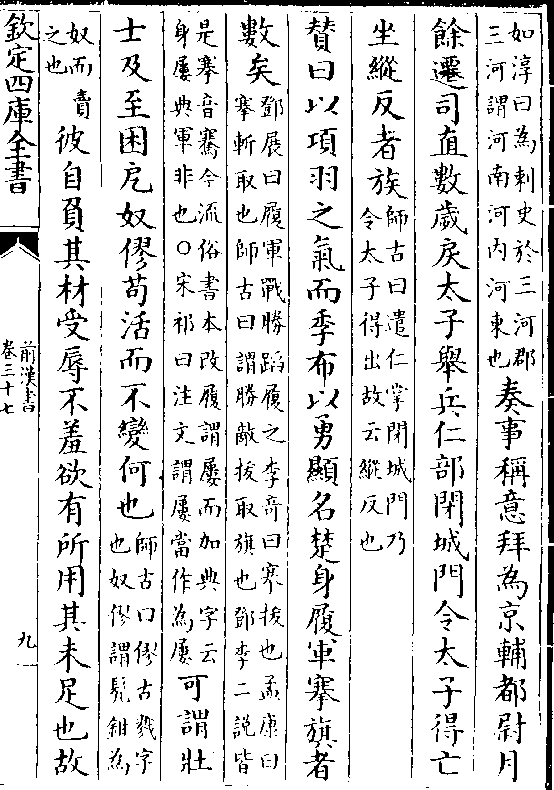 如淳曰為刺史於三河郡
三河謂河南河內河東也
奏事稱意拜為京輔都尉月
餘遷司直數歲戾太子舉兵仁部閉城門令太子得亡
坐縱反者族
師古曰遣仁掌閉城門乃
令太子得出故云縱反也
贊曰以項羽之氣而季布以勇顯名楚身履軍搴旗者
數矣
鄧展曰履軍戰勝蹈履之李奇曰搴拔也孟康曰
搴斬取也師古曰謂勝敵拔取旗也鄧李二說皆
是搴音騫今流俗書本改履謂屢而加典字云
身屢典軍非也○宋祁曰注文謂屢當作為屢
可謂壯
士及至困戹奴僇苟活而不變何也
師古曰僇古戮字
也奴僇謂髡鉗為
奴而賣
之也
彼自負其材受辱不羞欲有所用其未足也故
欽定四庫全書
前漢書
卷三十七
九